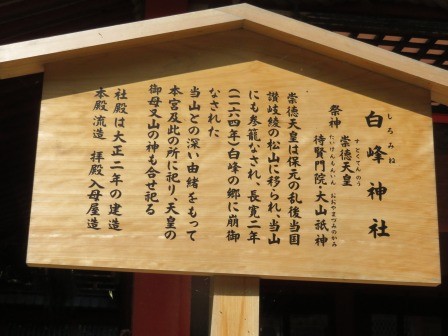 しろみね
白峰神社
すとくてんのう
祭神 崇徳天皇
たいけんもんいん おおやまづみのかみ
待賢門院・大山祇神
崇徳天皇は保元の乱後当国
讃岐綾の松山に移られ、当山
にも参籠なされ、長寛二年
(一一六四年)白峰の郷に崩御
なされた
当山との深い由緒をもって
本宮及此の所に祀り、天皇の
御母又山の神も合せ祀る
社殿は大正二年の建造
本殿流造 拝殿入母屋造